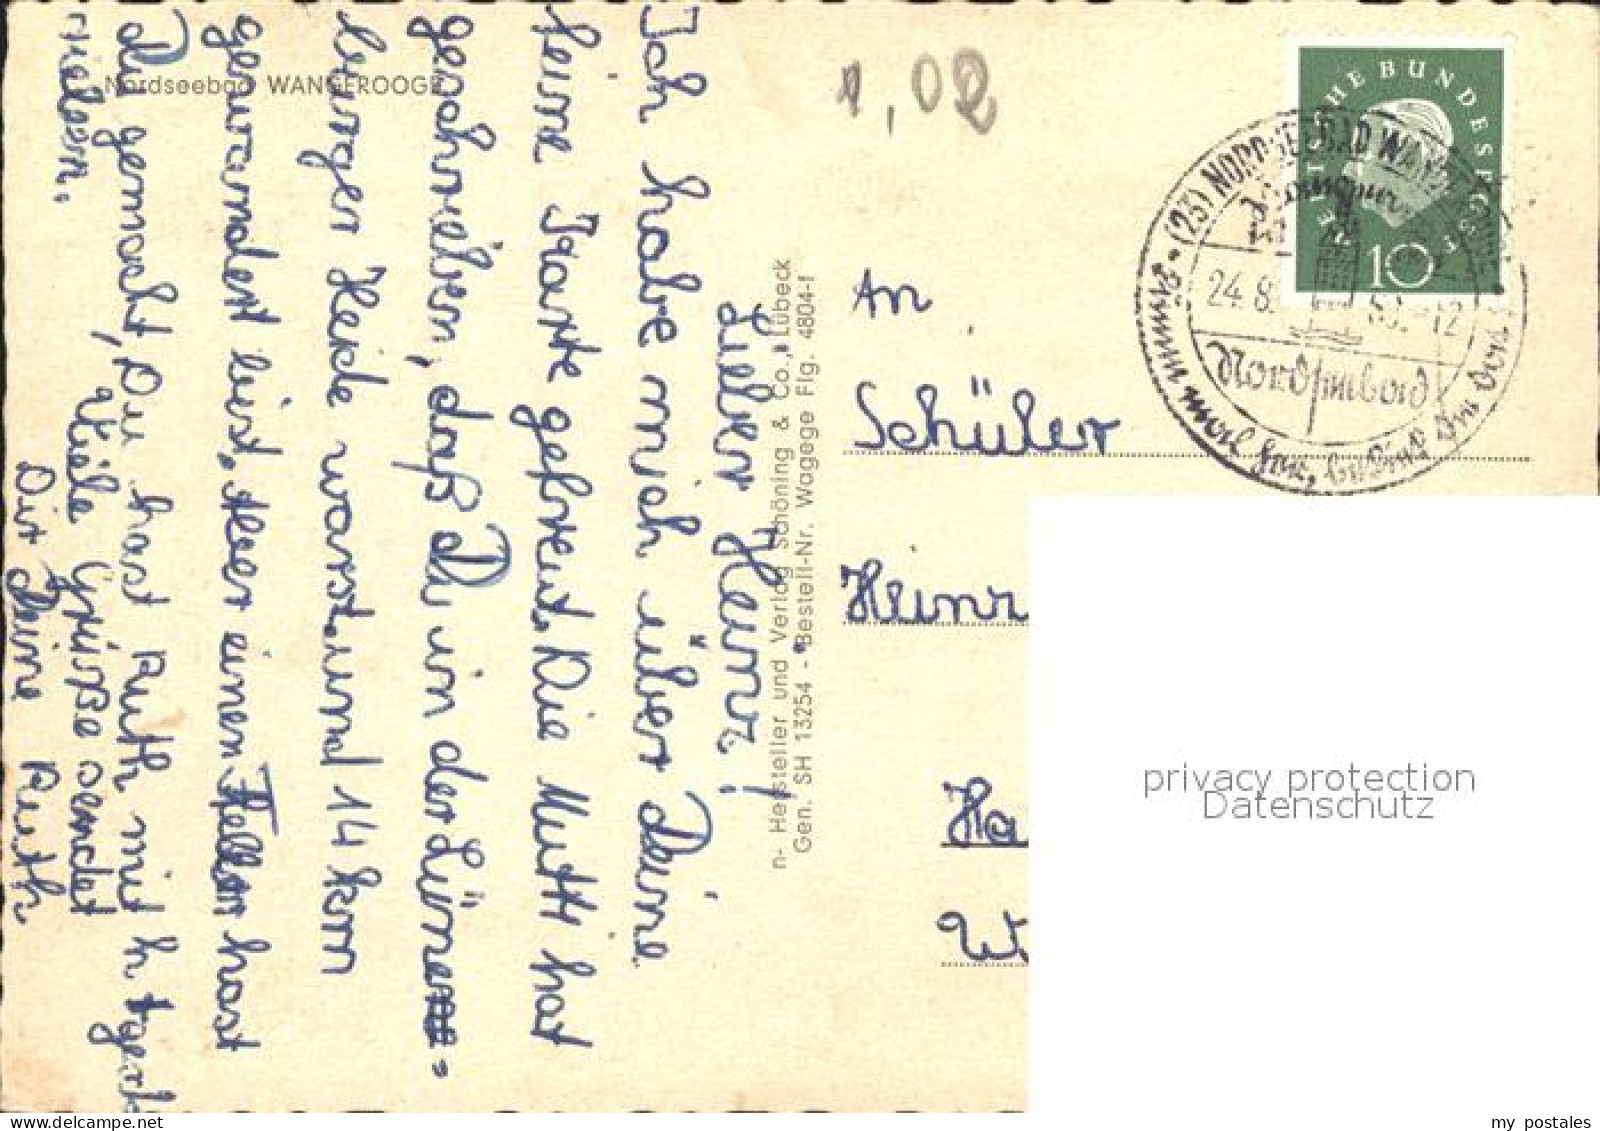 Nordseebad WANGEROOGE
1,02
DEUTSCHE BUNDESPOST
10
(23) NORDSEEBAD WANG
24.8.
-12
Nordseebad
An
Schüler
Heinz
Ha
n- Hersteller und Verlag Schöning & Co., Lübeck
Gen. SH 13254 - Bestell-Nr. Wagege Flg. 4804-f
Lieber Heinz!
Ich habe mich über Deine
feine Karte gefreut. Die Mutti hat
geschrieben, daß Du in der Lüne-
burger Heide warst und 14 km
gewandert bist. Aber einen Fehler hast
Du gemacht, Du hast Ruth mit h
Viele Grüße sendet
Dir Deine Ruth
privacy protection
Datenschutz
my postales